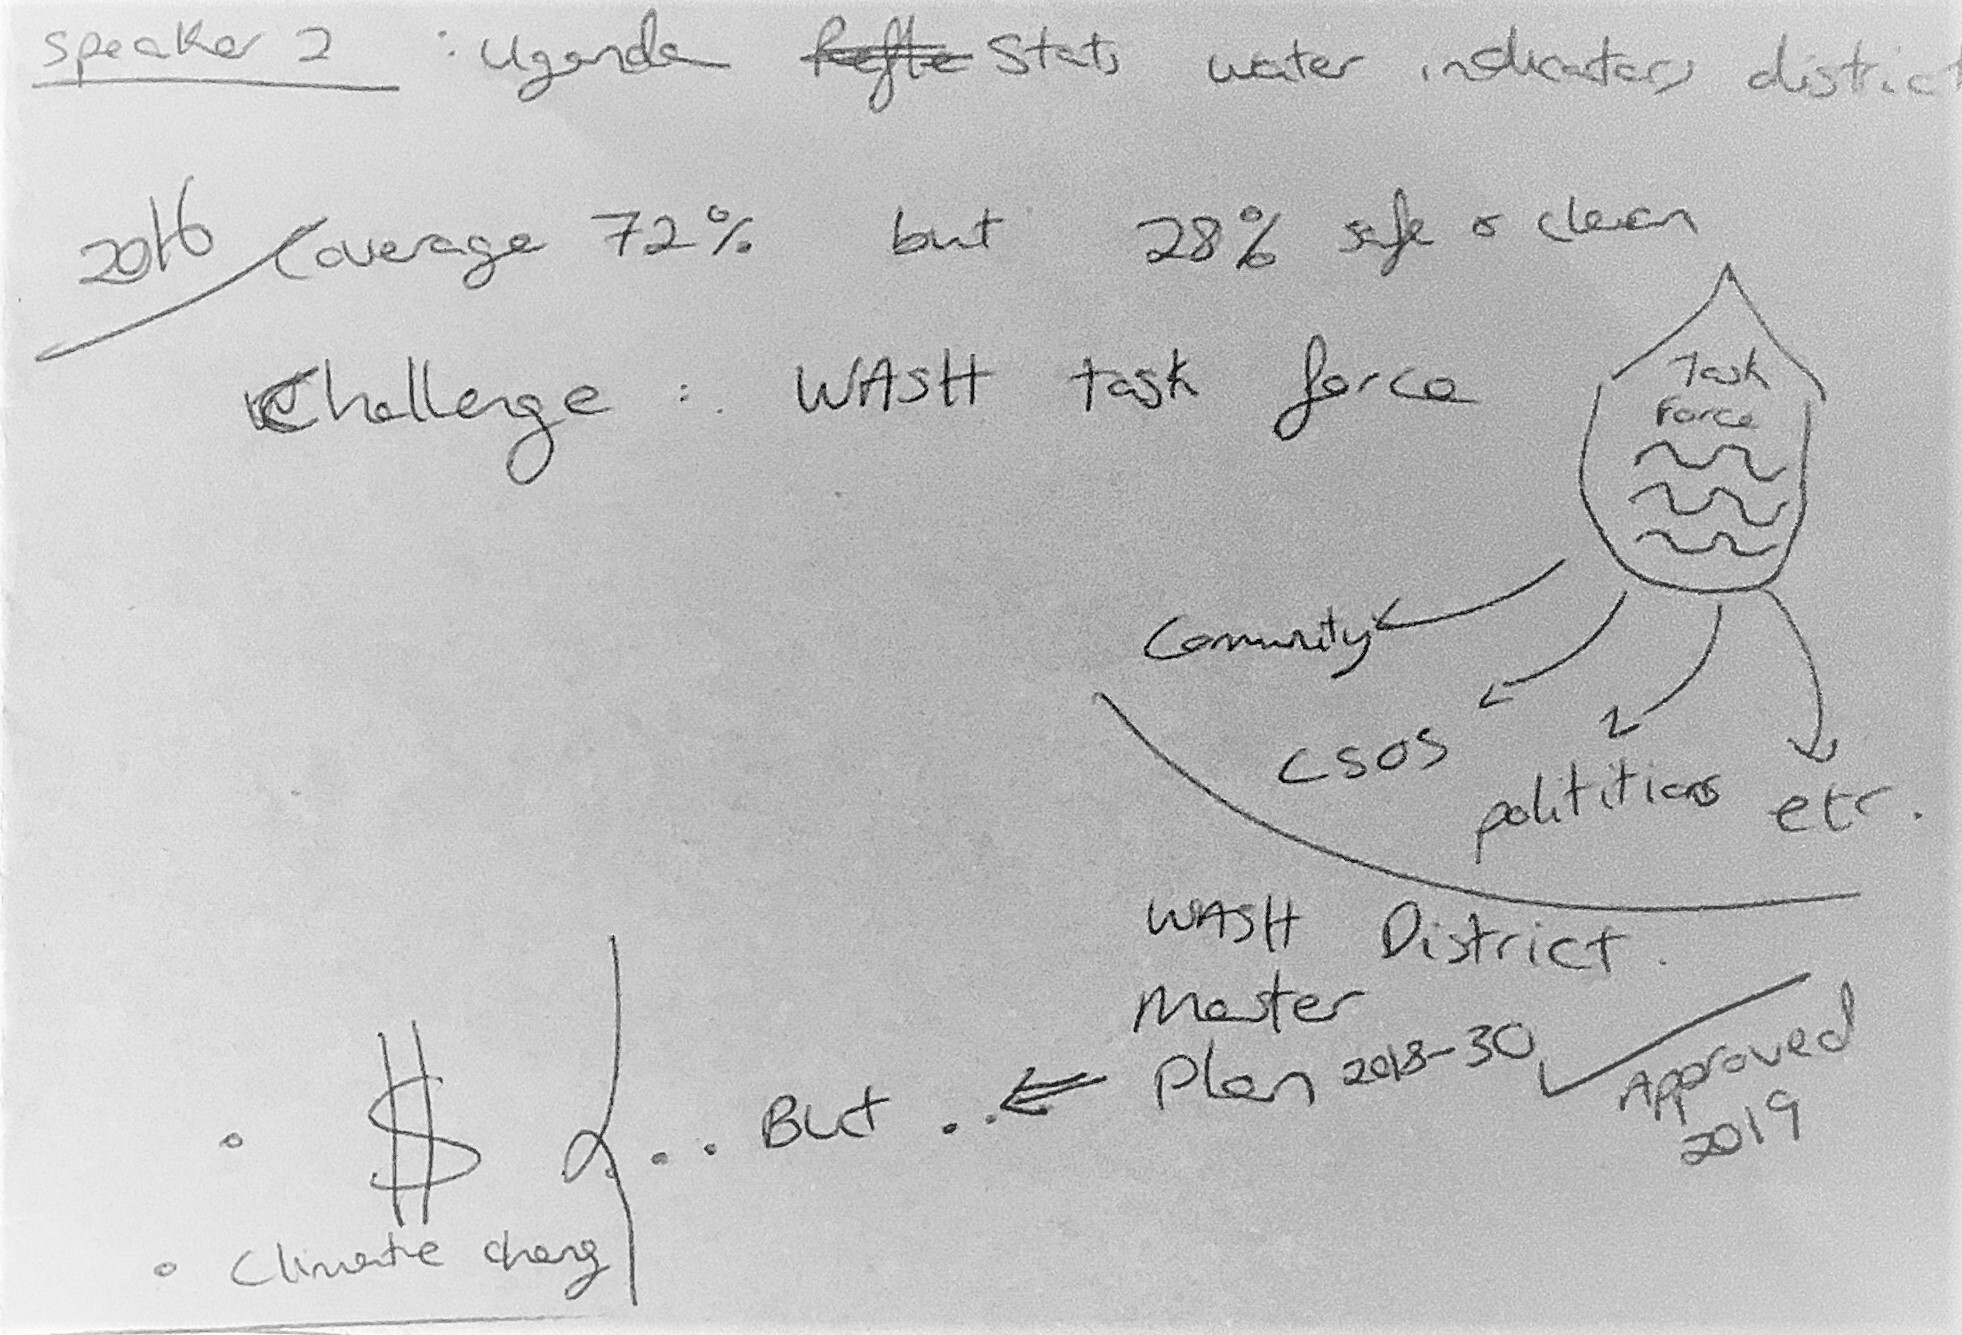 Speaker 2 : Uganda Stats water indicators district
2016 Coverage 72% but 28% safe & clean
Challenge : WASH task force
Task
Force
Comunity
CSOS
polititians etc.
WASH District.
Master
Plan 2018-30 Approved
2019
• $ ... But ...
• Climate chang